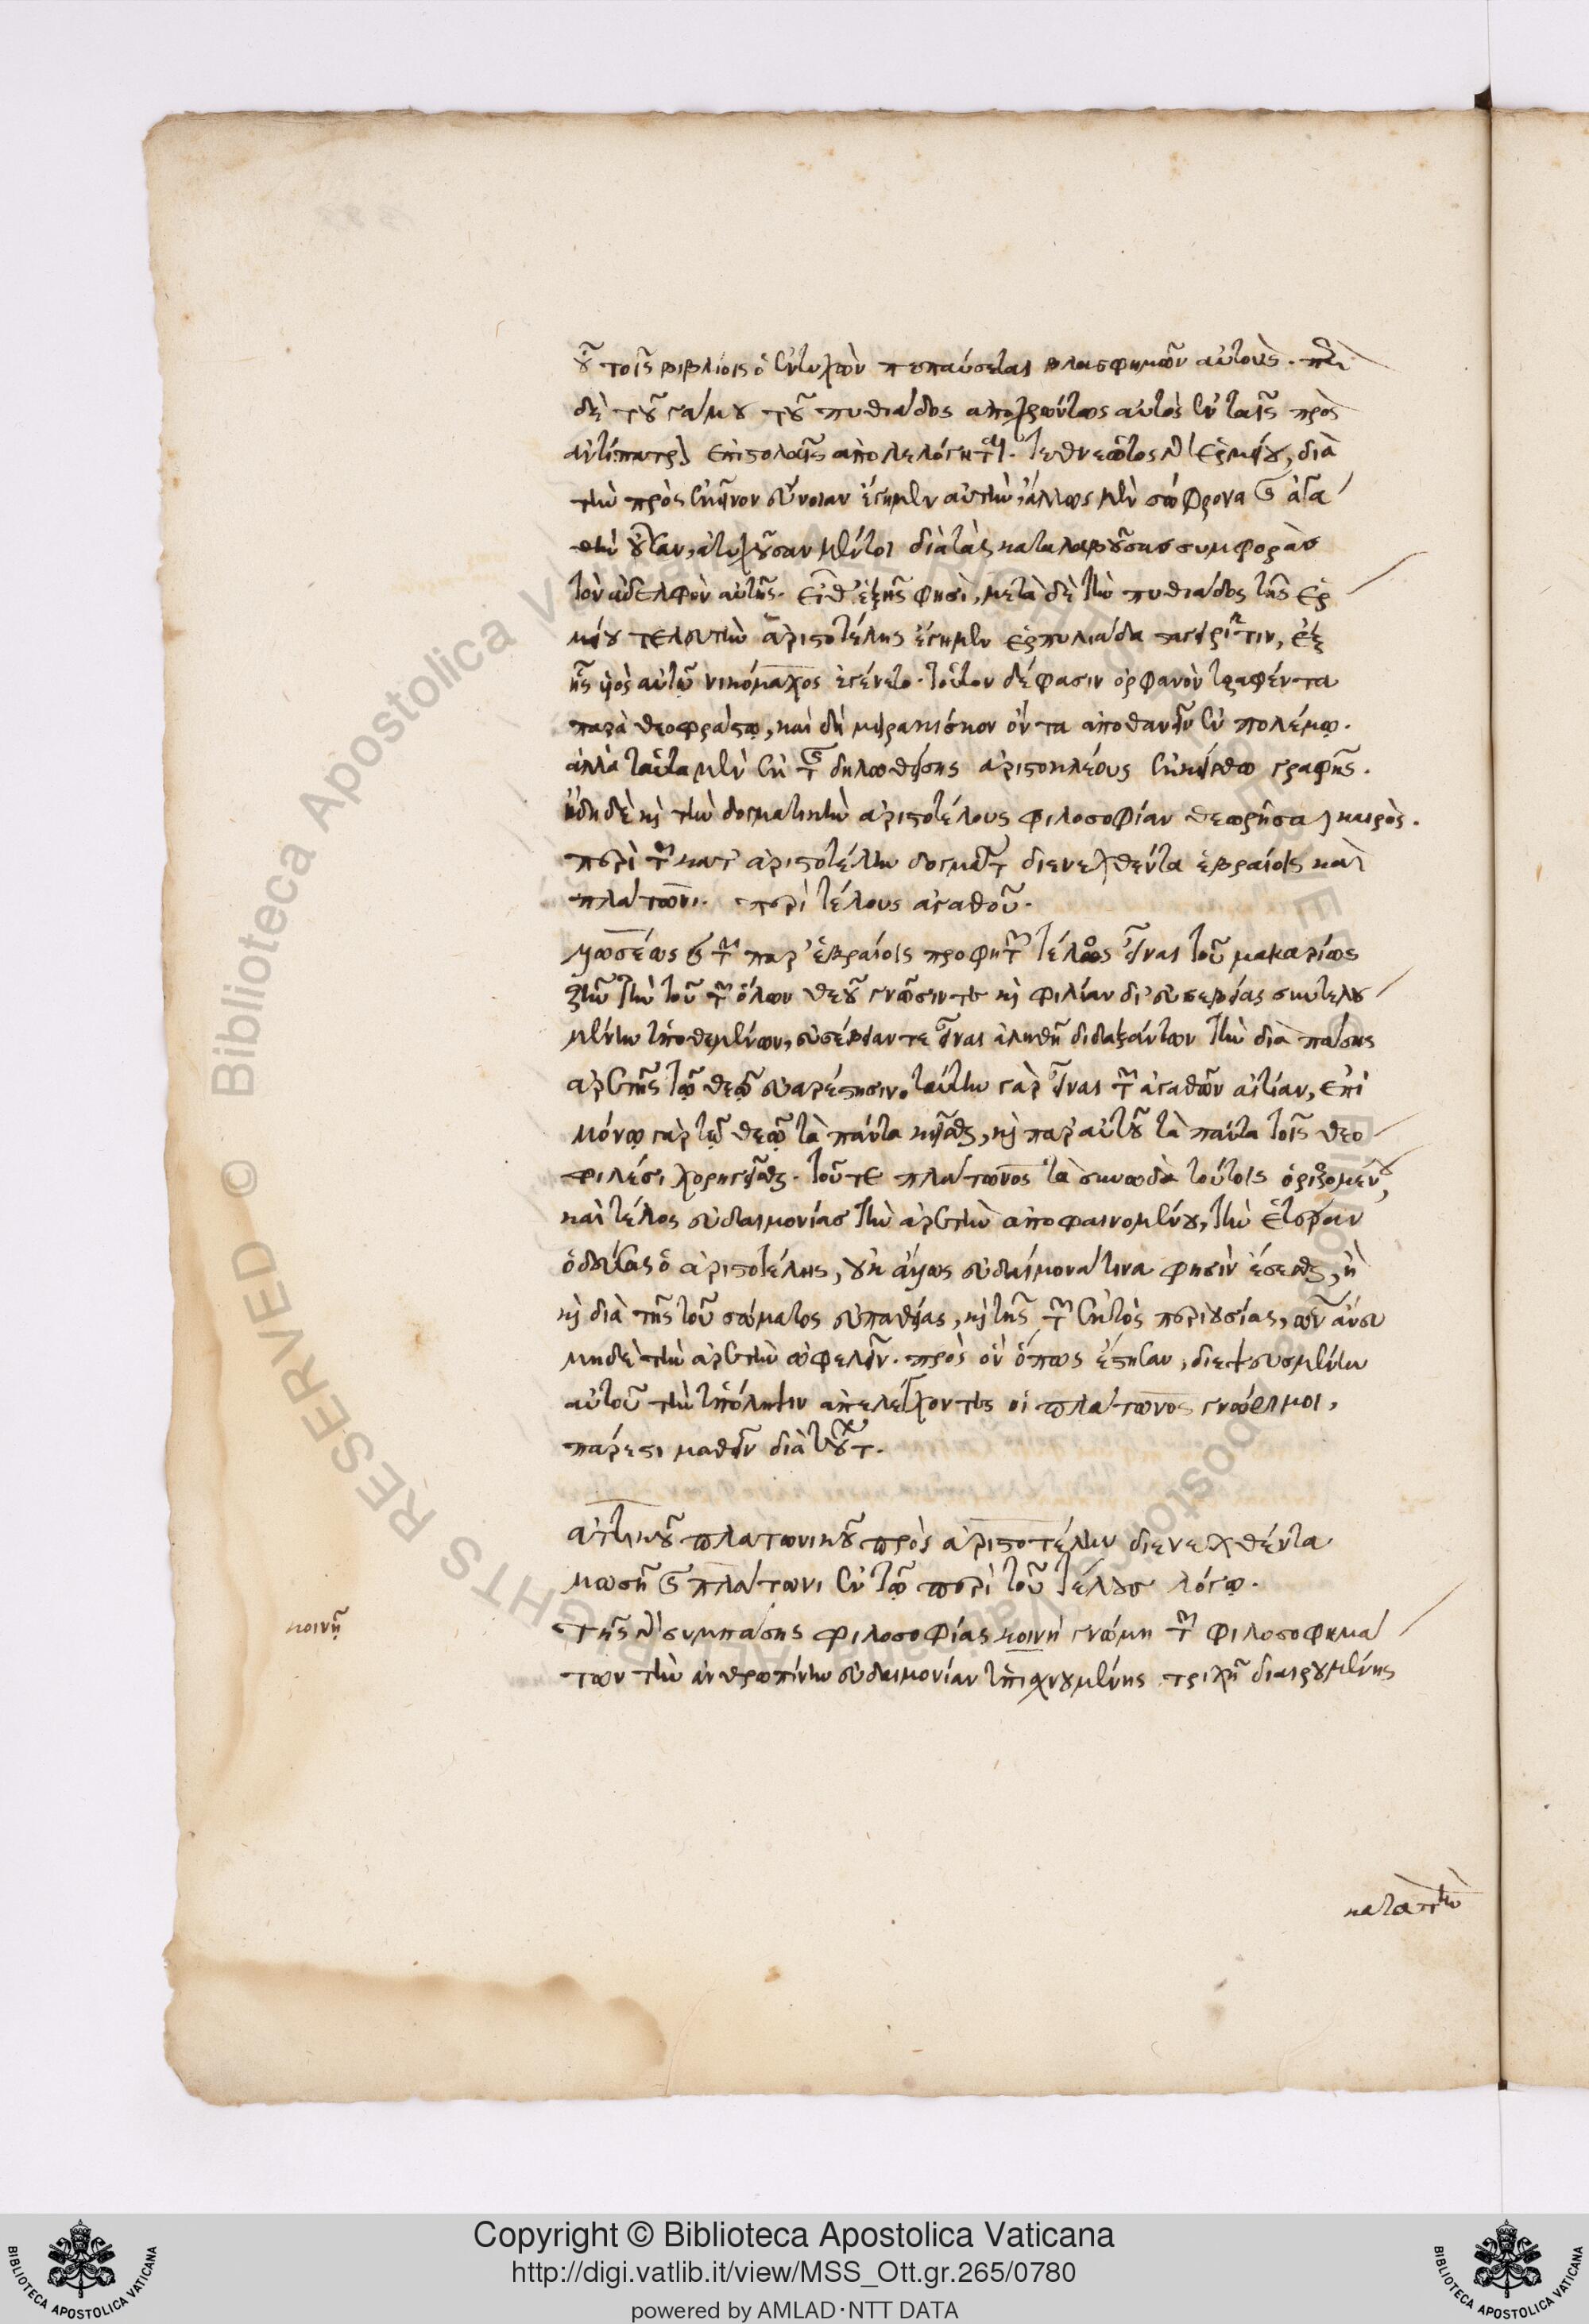 οὗ τοῖς βιβλίοις ὁ ἐντυχὼν πεπαύσεται βλασφημῶν αὐτούς. περὶ
δὲ τοῦ γάμου τοῦ πυθιάδος ἀποχρώντως αὐτὸς ἐν ταῖς πρὸς
ἀντίπατρον ἐπιστολαῖς ἀπολελόγηται. τεθνεῶτος γὰρ ἑρμείου, διὰ
τὴν πρὸς ἐκεῖνον εὔνοιαν ἔγημεν αὐτὴν, ἄλλως μὲν σώφρονα καὶ ἀγα
θὴν οὖσαν, ἀτυχοῦσαν μέντοι διὰ τὰς καταλαβούσας συμφορὰς
τὸν ἀδελφὸν αὐτῆς. εἶθ' ἑξῆς φησὶ, μετὰ δὲ τὴν πυθιάδος τῆς ἑρ
μείου τελευτὴν ἀριστοτέλης ἔγημεν ἑρπυλιάδα σταγειρῖτιν, ἐξ
ἧς υἱὸς αὐτῷ νικόμαχος ἐγένετο. τοῦτον δέ φασιν ὀρφανὸν τραφέντα
παρὰ θεοφράστῳ, καὶ δὴ μειρακίσκον ὄντα ἀποθανεῖν ἐν πολέμῳ.
ἀλλὰ ταῦτα μὲν ἐκ τῆς δηλωθείσης ἀριστοκλέους ἐκκείσθω γραφῆς.
ἤδη δὲ καὶ τὴν δογματικὴν ἀριστοτέλους φιλοσοφίαν θεωρῆσαι καιρός.
περὶ τῶν κατ' ἀριστοτέλην δογμάτων διενεχθέντα ἑβραίοις καὶ
πλάτωνι. περὶ τέλους ἀγαθοῦ.
μωσέως καὶ τῶν παρ' ἑβραίοις προφητῶν τέλος εἶναι τοῦ μακαρίως
ζῆν τὴν τοῦ τῶν ὅλων θεοῦ γνῶσίν τε καὶ φιλίαν δι' εὐσεβείας συντελου
μένην ὑποθεμένων, εὐσέβειαν τε εἶναι ἀληθῆ διδαξάντων τὴν διὰ πάσης
ἀρετῆς τῷ θεῷ εὐαρέστησιν. ταύτην γὰρ εἶναι τῶν ἀγαθῶν αἰτίαν, ἐπὶ
μόνῳ γὰρ τῷ θεῷ τὰ πάντα κεῖσθαι, καὶ παρ' αὐτοῦ τὰ πάντα τοῖς θεο
φιλέσι χορηγεῖσθαι. τοῦ τε πλάτωνος τὰ συνῳδὰ τούτοις ὁριζομένου,
καὶ τέλος εὐδαιμονίας τὴν ἀρετὴν ἀποφαινομένου, τὴν ἑτέραν
ὁδεύσας ὁ ἀριστοτέλης, οὐκ ἄλλως εὐδαίμονά τινα φησὶν ἔσεσθαι, ἢ
καὶ διὰ τῆς τοῦ σώματος εὐπαθείας, καὶ τῆς τῶν ἐκτὸς περιουσίας, ὧν ἄνευ
μηδὲ τὴν ἀρετὴν ὠφελεῖν. πρὸς ὃν ὅπως ἔστησαν, διεψευσμένην
αὐτοῦ τὴν ὑπόληψιν ἀπελέγχοντες οἱ πλάτωνος γνώριμοι,
πάρεστι μαθεῖν διὰ τούτων.
ἀττικοῦ πλατωνικοῦ πρὸς ἀριστοτέλην διενεχθέντα
μωσῇ καὶ πλάτωνι ἐν τῷ περὶ τοῦ τέλους λόγῳ.
τῆς γὰρ συμπάσης φιλοσοφίας κοινὴ γνώμη τῶν φιλοσοφημά
κοινῇ
των τὴν ἀνθρωπίνην εὐδαιμονίαν ὑπισχνουμένης τριχῇ διαιρουμένης
κατὰ τὴν
Copyright © Biblioteca Apostolica Vaticana
http://digi.vatlib.it/view/MSS_Ott.gr.265/0780
powered by AMLAD·NTT DATA